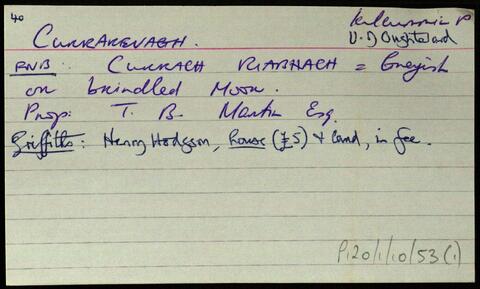 40
Kilcummin P
CURRAREVAGH.
U. D Oughterard
RNB: CURRACH RIABHACH = Greyish
or brindled Moor.
Prop: T. B. Martin Esq.
Griffiths: Henry Hodgson, house (£5) & land, in fee.
P120/1/10/53(1)